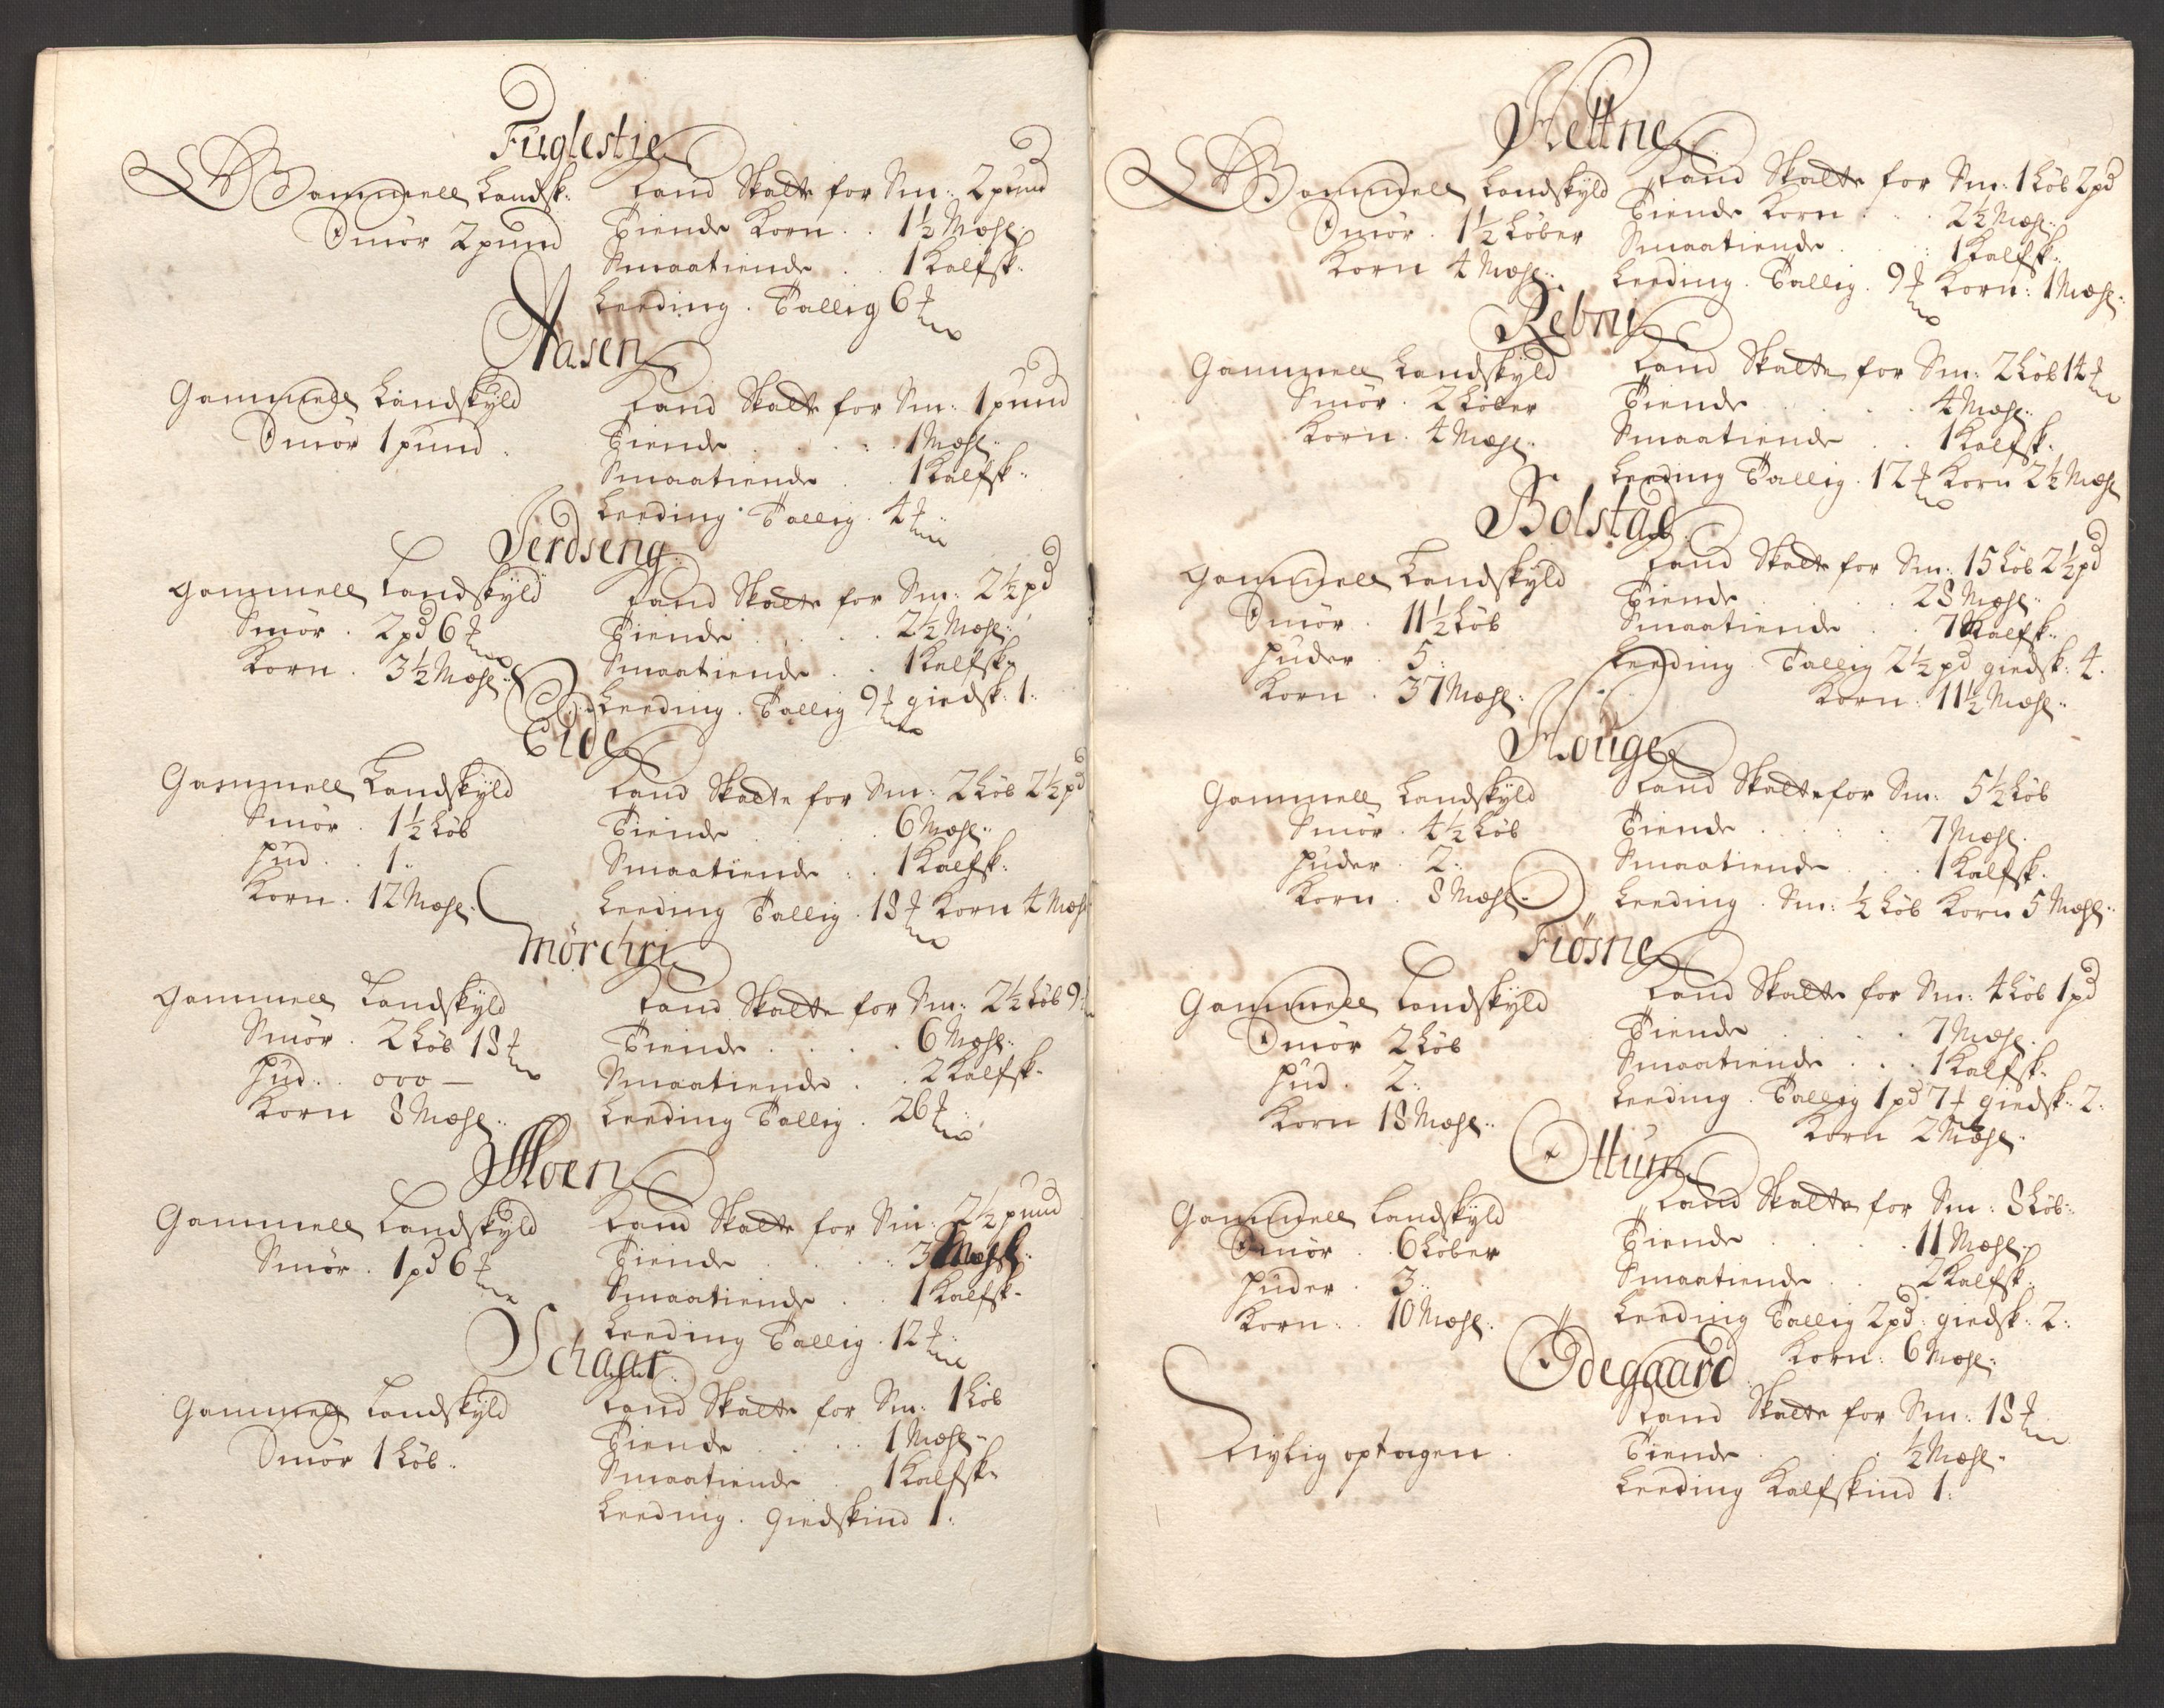 Fuglestie
Gammell Landsk:
Smör 2 pund
Land Skatte for Sm: 2 pund
Tiende Korn . . 1½ Mæhl:
Smaatiende . . 1 Kalfsk:
Leeding . Tallig 6 ℔
Aasen
Gammell Landskÿld
Smör 1 pund .
Land Skatt for Sm: 1 pund
Tiende . . . . 1 Mæhl:
Smaatiende . . 1 Kalfsk:
Leeding . Tallig . 4 ℔
Jerdseng
Gammell Landskÿld
Smör . 2 pd 6 ℔
Korn . 3½ Mæhl:
Land Skatte for Sm: 2½ pd
Tiende . . . . 2½ Mæhl:
Smaatiende . . 1 Kalfsk:
Leeding . Tallig 9 ℔ giedsk: 1:
Eide
Gammell Landskÿld
Smör . 1½ Löb
Hud . . 1:
Korn . 12 Mæhl:
Land Skatte for Sm: 2 Löb 2½ pd
Tiende . . . . 6 Mæhl:
Smaatiende . . 1 Kalfsk:
Leeding Tallig . 18 ℔ Korn 4 Mæhl
Mörchri
Gammell Landskÿld
Smör . 2 Löb 18 ℔
Hud . . 000 —
Korn 8 Mæhl:
Land Skatte for Sm: 2½ Löb 9
Tiende . . . . 6 Mæhl:
Smaatiende . . 2 Kalfsk:
Leeding Tallig . 26 ℔
Moen
Gammell Landskÿld
Smör . 1 pd 6 ℔
Land Skatte for Sm: 2½ pund
Tiende . . . . 3 Mæhl:
Smaatiende . . 1 Kalfsk:
Leeding Tallig . 12 ℔
Schaar
Gammell Landskÿld
Smör 1 Löb:
Land Skatte for Sm: 1 Löb
Tiende . . . . 1 Mæhl:
Smaatiende . . 1 Kalfsk:
Leeding . giedskind 1:
Heltne
Gammell Landskÿld
Smör . 1½ Löber
Korn 4 Mæhl:
Land Skatte for Sm: 1 Löb 2 pd
Tiende Korn . . 2½ Mæhl:
Smaatiende . . 1 Kalfsk:
Leeding . Tallig . 9 ℔ Korn: 1 Mæhl:
Rebni
Gammell Landskÿld
Smör . 2 Löber
Korn . 4 Mæhl:
Land Skatte for Sm: 2 Löb 14 ℔
Tiende . . . . 4 Mæhl:
Smaatiende . . 1 Kalfsk:
Leeding Tallig . 12 ℔ Korn 2½ Mæhl
Bolstad
Gammell Landskÿld
Smör . 11½ Löb
Huder . 5:
Korn . 37 Mæhl:
Land Skatte for Sm: 15 Löb 2½ pd
Tiende . . . . 28 Mæhl:
Smaatiende . . 7 Kalfsk:
Leeding . Tallig 2½ pd giedsk: 4.
Korn: 11½ Mæhl:
Houge
Gammell Landskÿld
Smör . 4½ Löb
Huder . 2:
Korn . 8 Mæhl:
Land Skatte for Sm: 5½ Löb
Tiende . . . . 7 Mæhl:
Smaatiende . . 1 Kalfsk:
Leeding . Sm: ½ Löb Korn 5 Mæhl:
Fiösne
Gammell Landskÿld
Smör 2 Löb
Hud . 2:
Korn 18 Mæhl:
Land Skatte for Sm: 4 Löb 1 pd
Tiende . . . . 7 Mæhl:
Smaatiende . . . 1 Kalfsk:
Leeding . Tallig 1 pd 7 ℔ giedsk: 2:
Korn 2 Mæhl:
Ottum
Gammell Landskÿld
Smör . . 6 Löber
Huder . 3:
Korn: . 10 Mæhl:
Land Skatte for Sm: 8 Löb:
Tiende . . . . 11 Mæhl:
Smaatiende . . 2 Kalfsk:
Leeding Tallig 2 pd: giedsk: 2:
Korn: 6 Mæhl:
Ödegaard
Nylig optagen .
Land Skatte for Sm: 18 ℔
Tiende . . . ½ Mæhl:
Leeding Kalfskind 1: